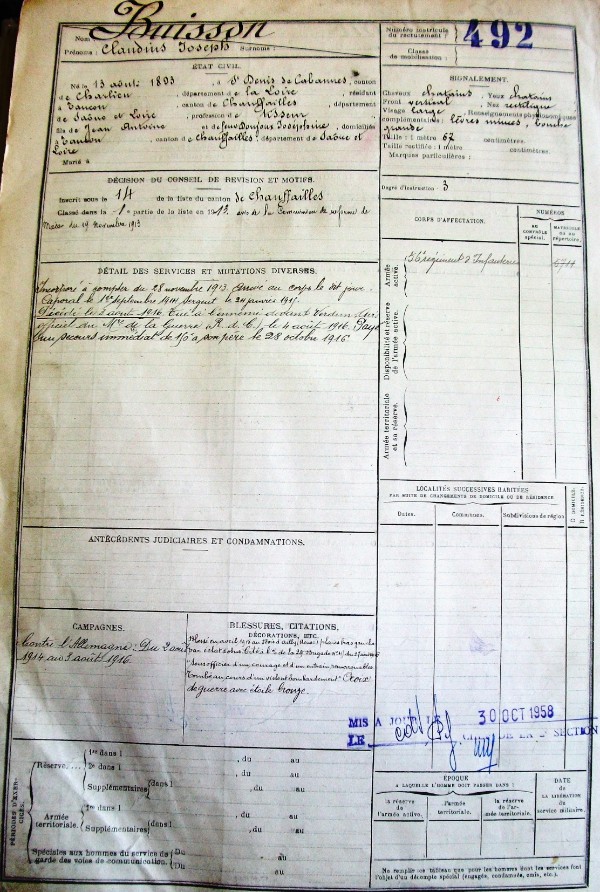 Nom : Buisson
Prénoms : Claudius Joseph Surnoms :
Numéro matricule du recrutement : 492
Classe de mobilisation :
ÉTAT CIVIL.
Né le 13 août 1893, à St Denis de Cabannes, canton
de Charlieu, département de la Loire, résidant
à Tancon, canton de Chauffailles, département
de Saône et Loire, profession de Tisseur
fils de Jean Antoine et de feue Josephine, domiciliés
à Tancon, canton de Chauffailles, département de Saône et
Loire
Marié à
SIGNALEMENT.
Cheveux chatains Yeux chatains
Front vertical Nez rectiligne
Visage large Renseignements physionomiques
complémentaires : lèvres minces,
grande
Taille : 1 mètre 67 centimètres.
Taille rectifiée : 1 mètre centimètres.
Marques particulières :
Degré d'instruction : 3
DÉCISION DU CONSEIL DE RÉVISION ET MOTIFS.
Inscrit sous le n° 14 de la liste du canton de Chauffailles
Classé dans la 1e partie de la liste en 1913 de la Commission de réforme de
du 19 novembre 1913
CORPS D'AFFECTATION.
NUMÉROS
AU CONTRÔLE SPÉCIAL.
MATRICULE OU AU RÉPERTOIRE.
Armée active.
56e régiment d'Infanterie
Disponibilité et réserve de l'armée active.
Armée territoriale et sa réserve.
DÉTAIL DES SERVICES ET MUTATIONS DIVERSES.
Incorporé à compter du 28 novembre 1913. Arrivé au corps le dit jour.
Caporal le 1er septembre 1914 Sergent le 24 janvier 1915.
Décédé le 3 août 1916. Tué à l'ennemi devant Verdun
officiel du Mre de la Guerre le 4 août 1916. Payé
un secours immédiat de 150 à son père le 28 octobre 1916
LOCALITÉS SUCCESSIVES HABITÉES
PAR SUITE DE CHANGEMENTS DE DOMICILE OU DE RÉSIDENCE
Dates.
Communes.
Subdivisions de région
D domicile.
R résidence.
ANTÉCÉDENTS JUDICIAIRES ET CONDAMNATIONS.
CAMPAGNES.
Contre l'Allemagne : Du 2 août
1914 au 3 août 1916.
BLESSURES, CITATIONS,
DÉCORATIONS, ETC.
Blessé en avril
Cité à l' de la
Sous officier d'un courage et d'un entrain remarquables
Tombé au cours d'un violent bombardement. Croix
de guerre avec étoile bronze.
MIS A JOUR LE 30 OCT 1958
LE DE LA SECTION
PÉRIODES D'EXERCICES.
Réserve
1re dans l , du au
2e dans l , du au
Supplémentaires (dans l , du au
Armée territoriale.
1re dans l , du au
Supplémentaires (dans l , du au
Spéciales aux hommes du service de garde des voies de communication.
Du au
Du au
ÉPOQUE
À LAQUELLE L'HOMME DOIT PASSER DANS :
la réserve de l'armée active.
l'armée territoriale.
la réserve de l'armée territoriale.
DATE DE LA LIBÉRATION du service militaire.
Ne remplir ce tableau que pour les hommes dont les services font
l'objet d'un décompte spécial (engagés, condamnés, omis, etc.).